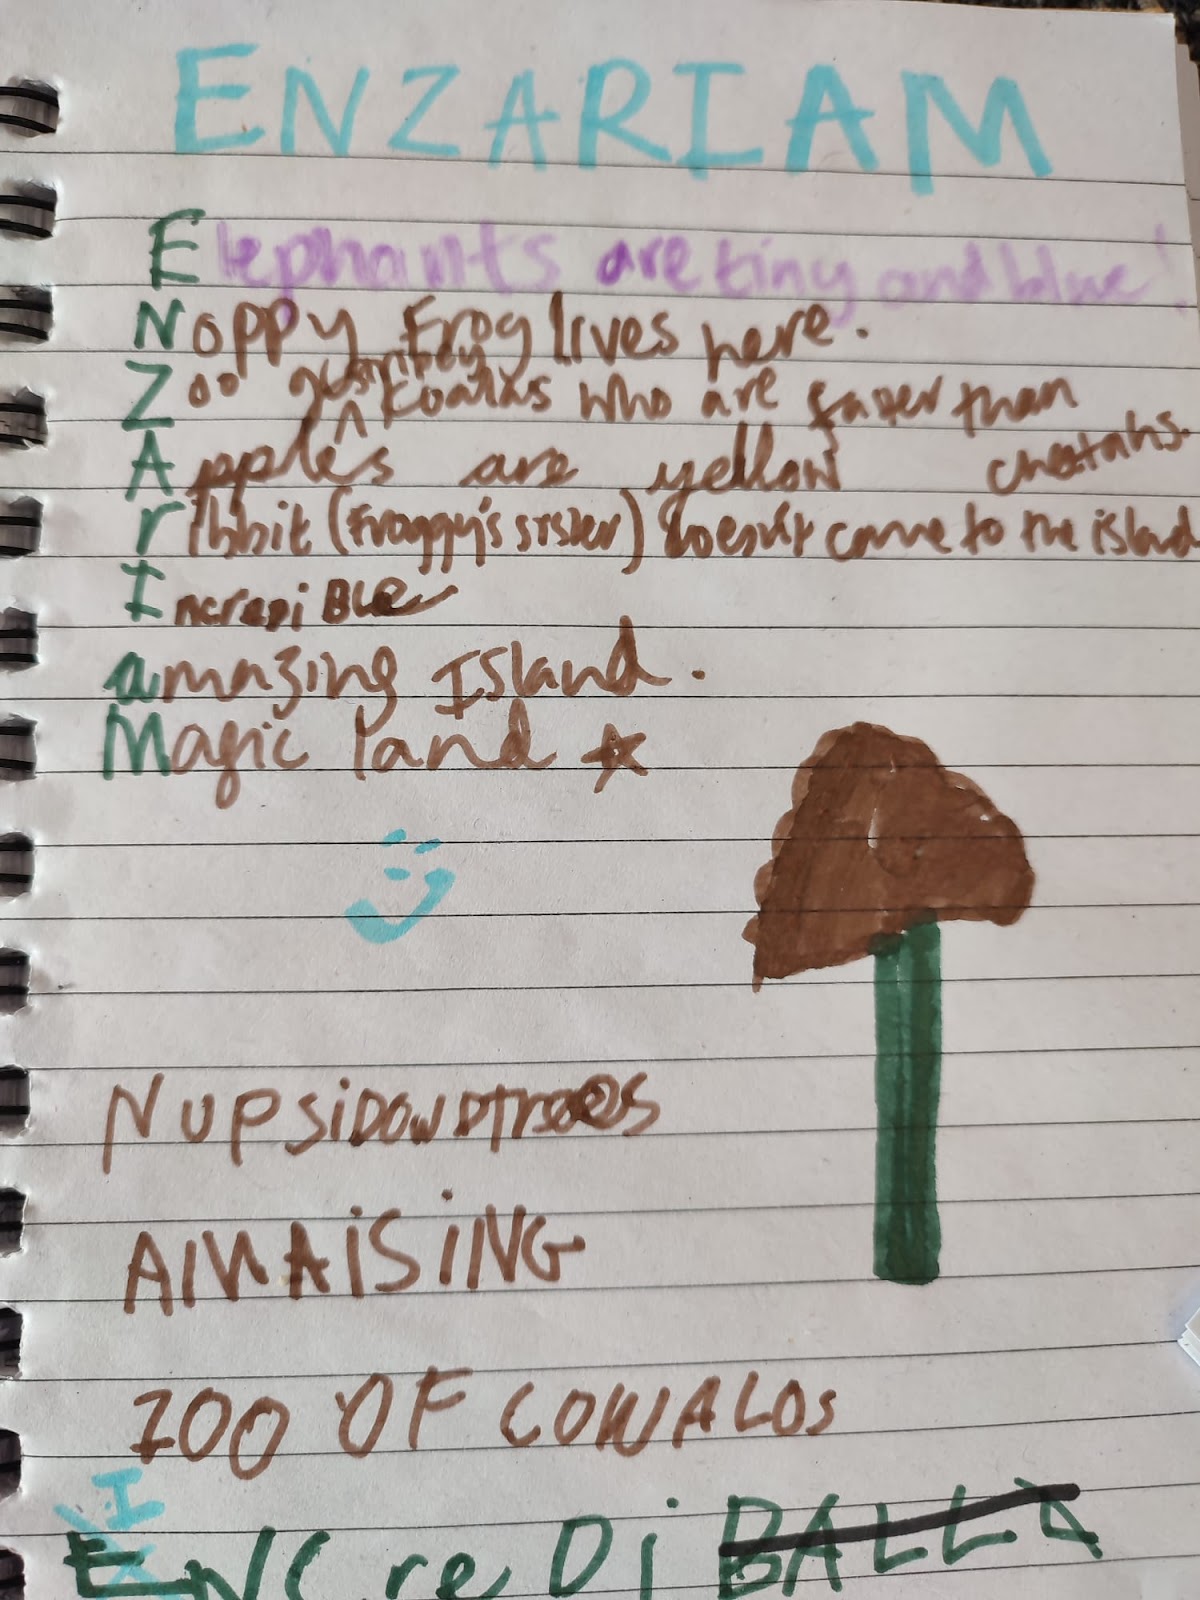 ENZARIAM
Elephants are tiny and blue!
Noppy Frog lives here.
Zoo Koalas who are faser than
cheetahs.
Apples are yellow
ribbit (Froggy's sister) doesn't come to the island
IncrediBLe
amazing Island.
Magic land
NUPSiDOWDtrees
AMAiSiNG
ZOO OF COWALOS
I
ENCreDiBALLA